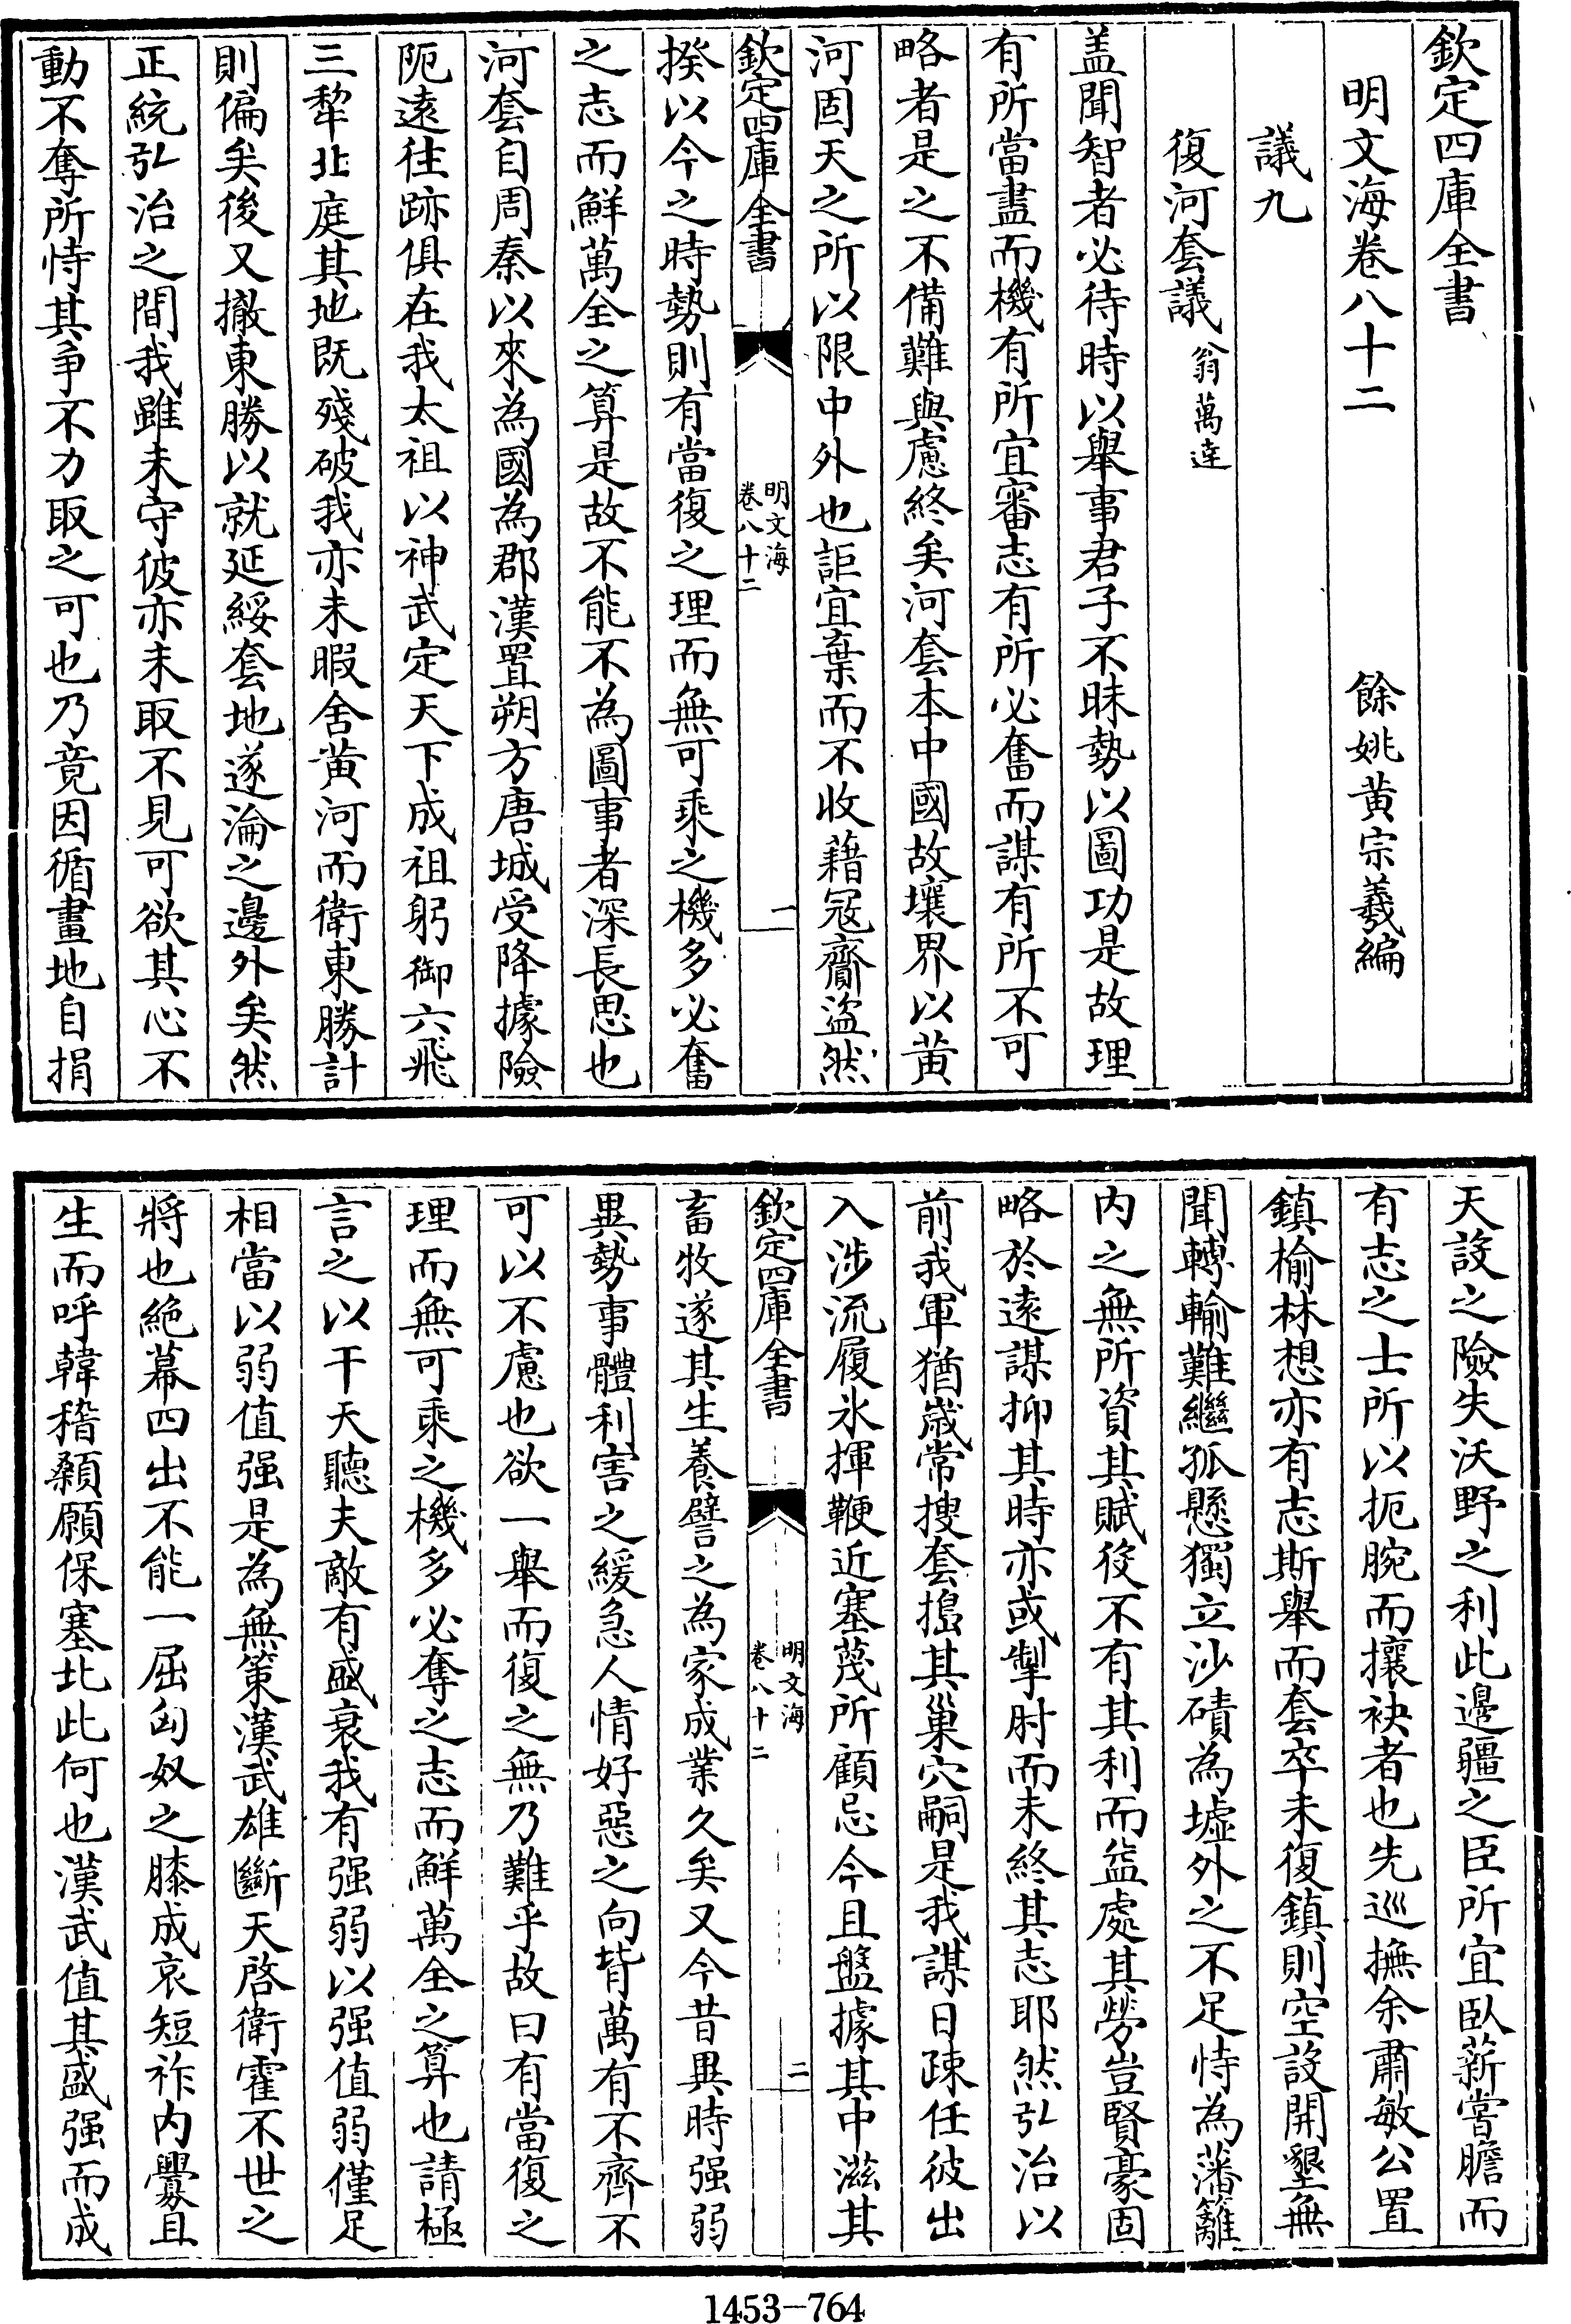 欽定四庫全書
明文海卷八十二　餘姚黄宗羲編
議九
復河套議翁萬達
盖聞智者必待時以舉事君子不昧勢以圖功是故理
有所當盡而機有所宜審志有所必奮而謀有所不可
略者是之不備難與慮終矣河套本中國故壤界以黄
河固天之所以限中外也詎宜棄而不收藉冦齎盜然
欽定四庫全書
明文海
卷八十二
一
揆以今之時勢則有當復之理而無可乘之機多必奮
之志而鮮萬全之算是故不能不為圖事者深長思也
河套自周秦以來為國為郡漢置朔方唐城受降據險
阨遠往跡俱在我太祖以神武定天下成祖躬御六飛
三犂北庭其地既殘破我亦未暇舍黄河而衛東勝計
則偏矣後又撤東勝以就延綏套地遂淪之邊外矣然
正統弘治之間我雖未守彼亦未取不見可欲其心不
動不奪所恃其争不力取之可也乃竟因循畫地自捐
天設之險失沃野之利此邊疆之臣所宜臥薪嘗膽而
有志之士所以扼腕而攘袂者也先巡撫余肅敏公置
鎮榆林想亦有志斯舉而套卒未復鎮則空設開墾無
聞轉輸難繼孤懸獨立沙磧為墟外之不足恃為藩籬
内之無所資其賦役不有其利而盆處其勞豈賢豪固
略於遠謀抑其時亦或掣肘而未終其志耶然弘治以
前我軍猶歲常搜套搗其巢穴嗣是我謀日疎任彼出
入涉流履氷揮鞭近塞蔑所顧忌今且盤據其中滋其
欽定四庫全書
明文海
卷八十二
二
畜牧遂其生養譬之為家成業久矣又今昔異時强弱
異勢事體利害之緩急人情好惡之向背萬有不齊不
可以不慮也欲一舉而復之無乃難乎故曰有當復之
理而無可乘之機多必奪之志而鮮萬全之算也請極
言之以干天聽夫敵有盛衰我有强弱以强值弱僅足
相當以弱值强是為無策漢武雄斷天啓衛霍不世之
將也絶幕四出不能一屈匈奴之膝成哀短祚内釁且
生而呼韓稽顙願保塞北此何也漢武值其盛强而成
1453-764